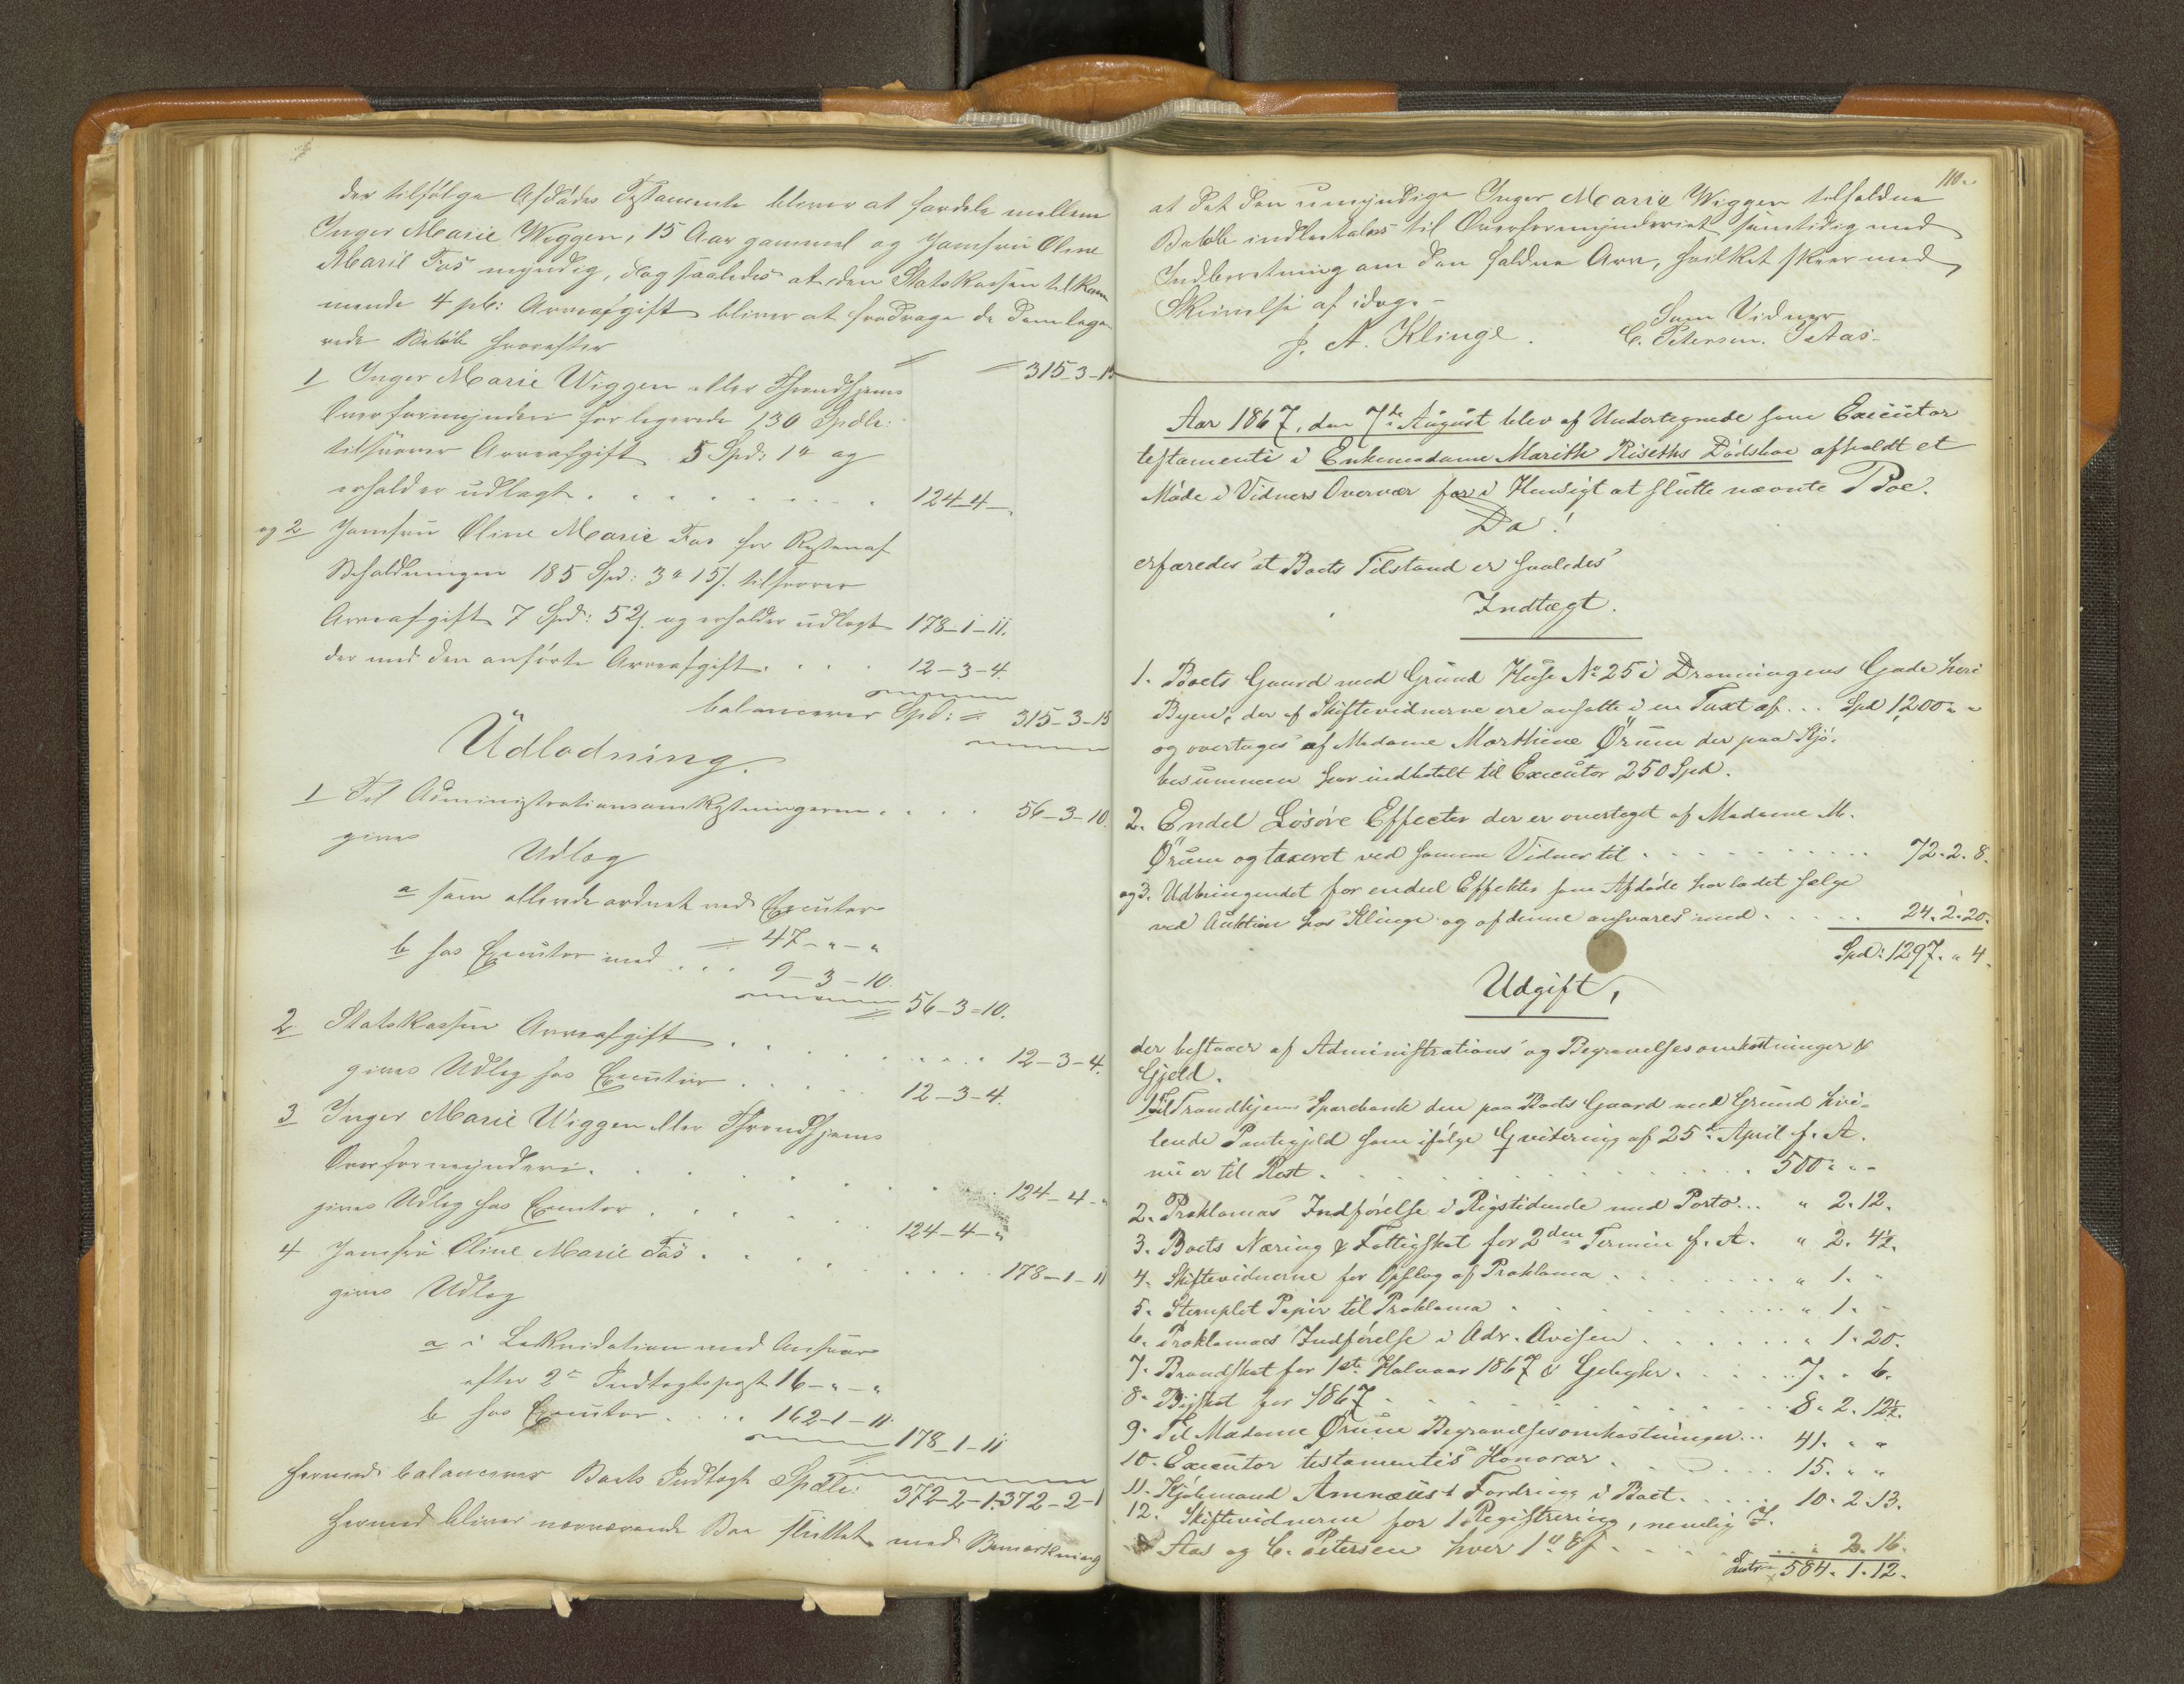 der tilfølge Afdødes Testamente bliver at fordele mellem
Inger Marie Wiggen, 15 Aar gammel og Jomfru Oline
Marie Fos myndig, dog saaledes at den Statskassen tilkom
mende 4 pCt: Arveafgift bliver at fradrage de dem lega
rede Beløb hvorefter
315-3-15
1 Inger Marie Wiggen eller Throndhjems
Overformynderi for legerede 130 Spdlr:
tilsvarer Arveafgift 5 Spd: 1 " og
erholder udlagt . . . . . . . . 124-4-"
og 2 Jomfru Oline Marie Fos for Resten af
Beholdningen 185 Spd: 3 " 15 s. tilsvarer
Arveafgift 7 Spd: 52 s. og erholder udlagt 178-1-11.
der med den anførte Arveafgift . . . . 12-3-4.
balancerer Spd: 315-3-15
Udlodning.
1 Til Administrationsomkostningerne . . . . 56-3-10.
gives
Udlæg
a som allerede ordnet ved Executor
47-"-"
b hos Executor med . . . 9-3-10.
56-3-10.
2 Statskassen Arveafgift . . . . . . . . 12-3-4.
gives Udlæg hos Executor . . . . 12-3-4.
3 Inger Marie Wiggen eller Throndhjems
Overformynderi . . . . . . . . 124-4-"
gives Udlæg hos Executor . . . . . 124-4-"
4 Jomfru Oline Marie Fos . . . . . . . 178-1-11
gives Udlæg
a i Likvidation med Ansvar
efter 2den Indtægtspost 16-"-"
b hos Executor . . . . 162-1-11
178-1-11
hermed balancerer Boets Indtægt Spdlr: 372-2-1. 372-2-1
Hermed bliver nærværende Boe sluttet med Bemærkning
110.
at det den umyndige Inger Marie Wiggen tilfaldne
Beløb indbetales til Overformynderiet samtidig med
Indberetning om den faldne Arv, hvilket skeer med
Skrivelse af idag. -
Som Vidner
J. A. Klinge. C. Petersen. I Aas.
Aar 1867, den 7de August blev af Undertegnede som Executor
testamenti i Enkemadame Marith Riseths Dødsboe afholdt et
Møde i Vidners Overvær for i Hensigt at slutte nævnte Boe.
Da!
erfaredes at Boets Tilstand er saaledes
Indtægt.
1. Boets Gaard med Grund Huse No 25 i Dronningens Gade heri
Byen, der af Skiftevidnerne ere ansatte i en Taxt af . . . Spd 1200 " "
og overtages af Madame Marthine Ørum der paa Kjø-
besummen har indbetalt til Executor 250 Spd.
2. Endel Løsøre Effecter der er overtaget af Madame M.
Ørum og taxeret ved samme Vidner til . . . . . . . . 72. 2. 8.
og 3. Udbringendet for endeel Effekter som Afdøde har ladet sælge
ved Auktion hos Klinge og af denne ansvares med . . . . . 24. 2. 20.
Spd: 1297. " 4.
Udgift,
der bestaaer af Administrations og Begravelsesomkostninger &
Gjeld.
1. Til Trondhjems Sparebank den paa Boets Gaard med Grund hvi-
lende Pantegjeld som ifølge Qvitering af 25de April f. A.
nu er til Rest . . . . . . . . . . . . . 500 " "
2. Proklamas Indførelse i Rigstidende med Porto . . . " 2. 12.
3. Boets Næring & Fattigskat for 2den Termin f. A. " 2. 4½.
4. Skiftevidnerne for Opslag af Proklama . . . . . . . " 1. "
5. Stemplet Papir til Proklama . . . . . . . . . . . " 1. "
6. Proklamaes Indførelse i Adr. Avisen . . . . . . . " 1. 20.
7. Brandskat for 1ste Halvaar 1867 & Gebyhr . . . . . 7. " 6.
8. Byskat for 1867 . . . . . . . . . . . . . . 8. 2. 12½.
9. Til Madame Ørum Begravelsesomkostninger . . . 41. " "
10. Executor testamentis Honorar . . . . . . . . 15. " "
11. Kjøbmand Amnæus's Fordring i Boet . . . . . 10. 2. 13.
12. Skiftevidnerne for 1 Registrering, nemlig I.
Aas og C. Petersen hver 1 " 8 s . . . . . . . " 2. 16.
Latus 584. 1. 12.